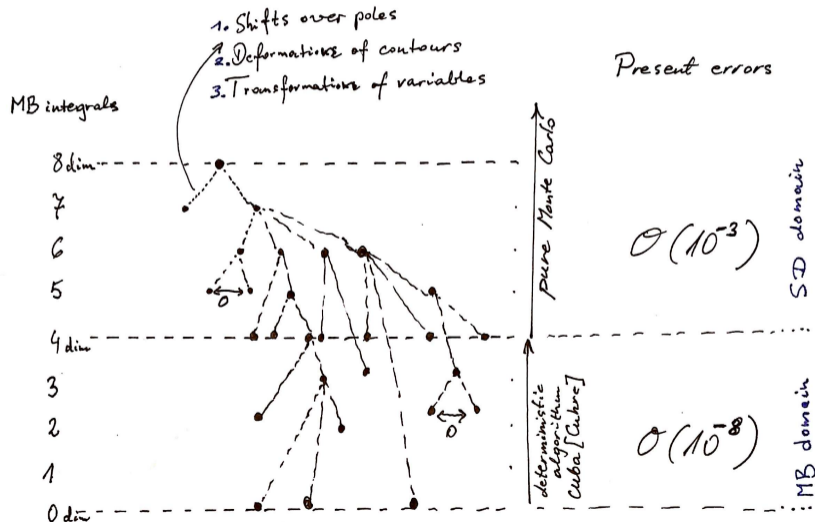 1. Shifts over poles
2. Deformations of contours
3. Transformations of variables
Present errors
MB integrals
8 dim
7
6
5
4 dim
3
2
1
0 dim
0
0
pure Monte Carlo
deterministic
algorithm
Cuba [Cuhre]
O(10⁻³)
O(10⁻⁸)
SD domain
MB domain